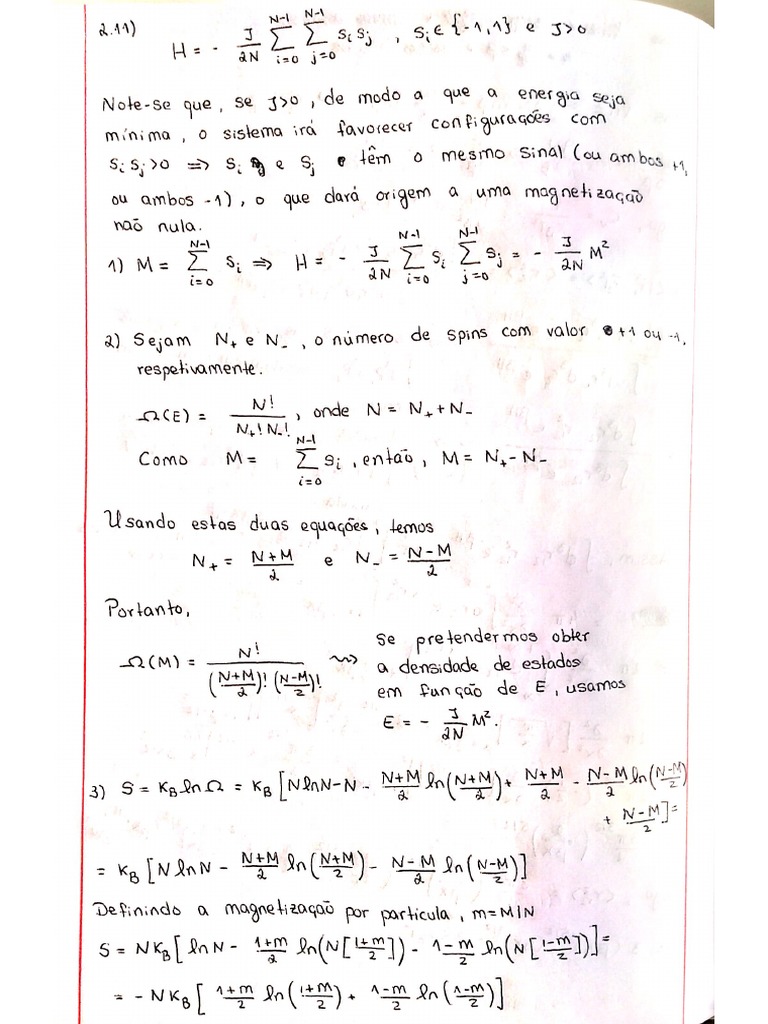 2.11) H = - J/2N ∑_{i=0}^{N-1} ∑_{j=0}^{N-1} s_i s_j , s_i ∈ {-1,1} e J>0
Note-se que, se J>0, de modo a que a energia seja
mínima, o sistema irá favorecer configurações com
s_i s_j >0 ⇒ s_i e s_j têm o mesmo sinal (ou ambos +1,
ou ambos -1), o que dará origem a uma magnetização
não nula.
1) M = ∑_{i=0}^{N-1} s_i ⇒ H = - J/2N ∑_{i=0}^{N-1} s_i ∑_{j=0}^{N-1} s_j = - J/2N M²
2) Sejam N₊ e N₋, o número de spins com valor +1 ou -1,
respetivamente.
Ω(E) = N!/(N₊! N₋!) , onde N = N₊ + N₋
Como M = ∑_{i=0}^{N-1} s_i , então, M = N₊ - N₋
Usando estas duas equações, temos
N₊ = (N+M)/2 e N₋ = (N-M)/2
Portanto,
Ω(M) = N!/(((N+M)/2)! ((N-M)/2)!) ⇝ se pretendermos obter
a densidade de estados
em função de E, usamos
E = - J/2N M².
3) S = K_B ln Ω = K_B [N ln N - N - (N+M)/2 ln((N+M)/2) + (N+M)/2 - (N-M)/2 ln((N-M)/2)
+ (N-M)/2] =
= K_B [N ln N - (N+M)/2 ln((N+M)/2) - (N-M)/2 ln((N-M)/2)]
Definindo a magnetização por partícula, m = M/N
S = N K_B [ln N - (1+m)/2 ln(N[(1+m)/2]) - (1-m)/2 ln(N[(1-m)/2])] =
= - N K_B [(1+m)/2 ln((1+m)/2) + (1-m)/2 ln((1-m)/2)]